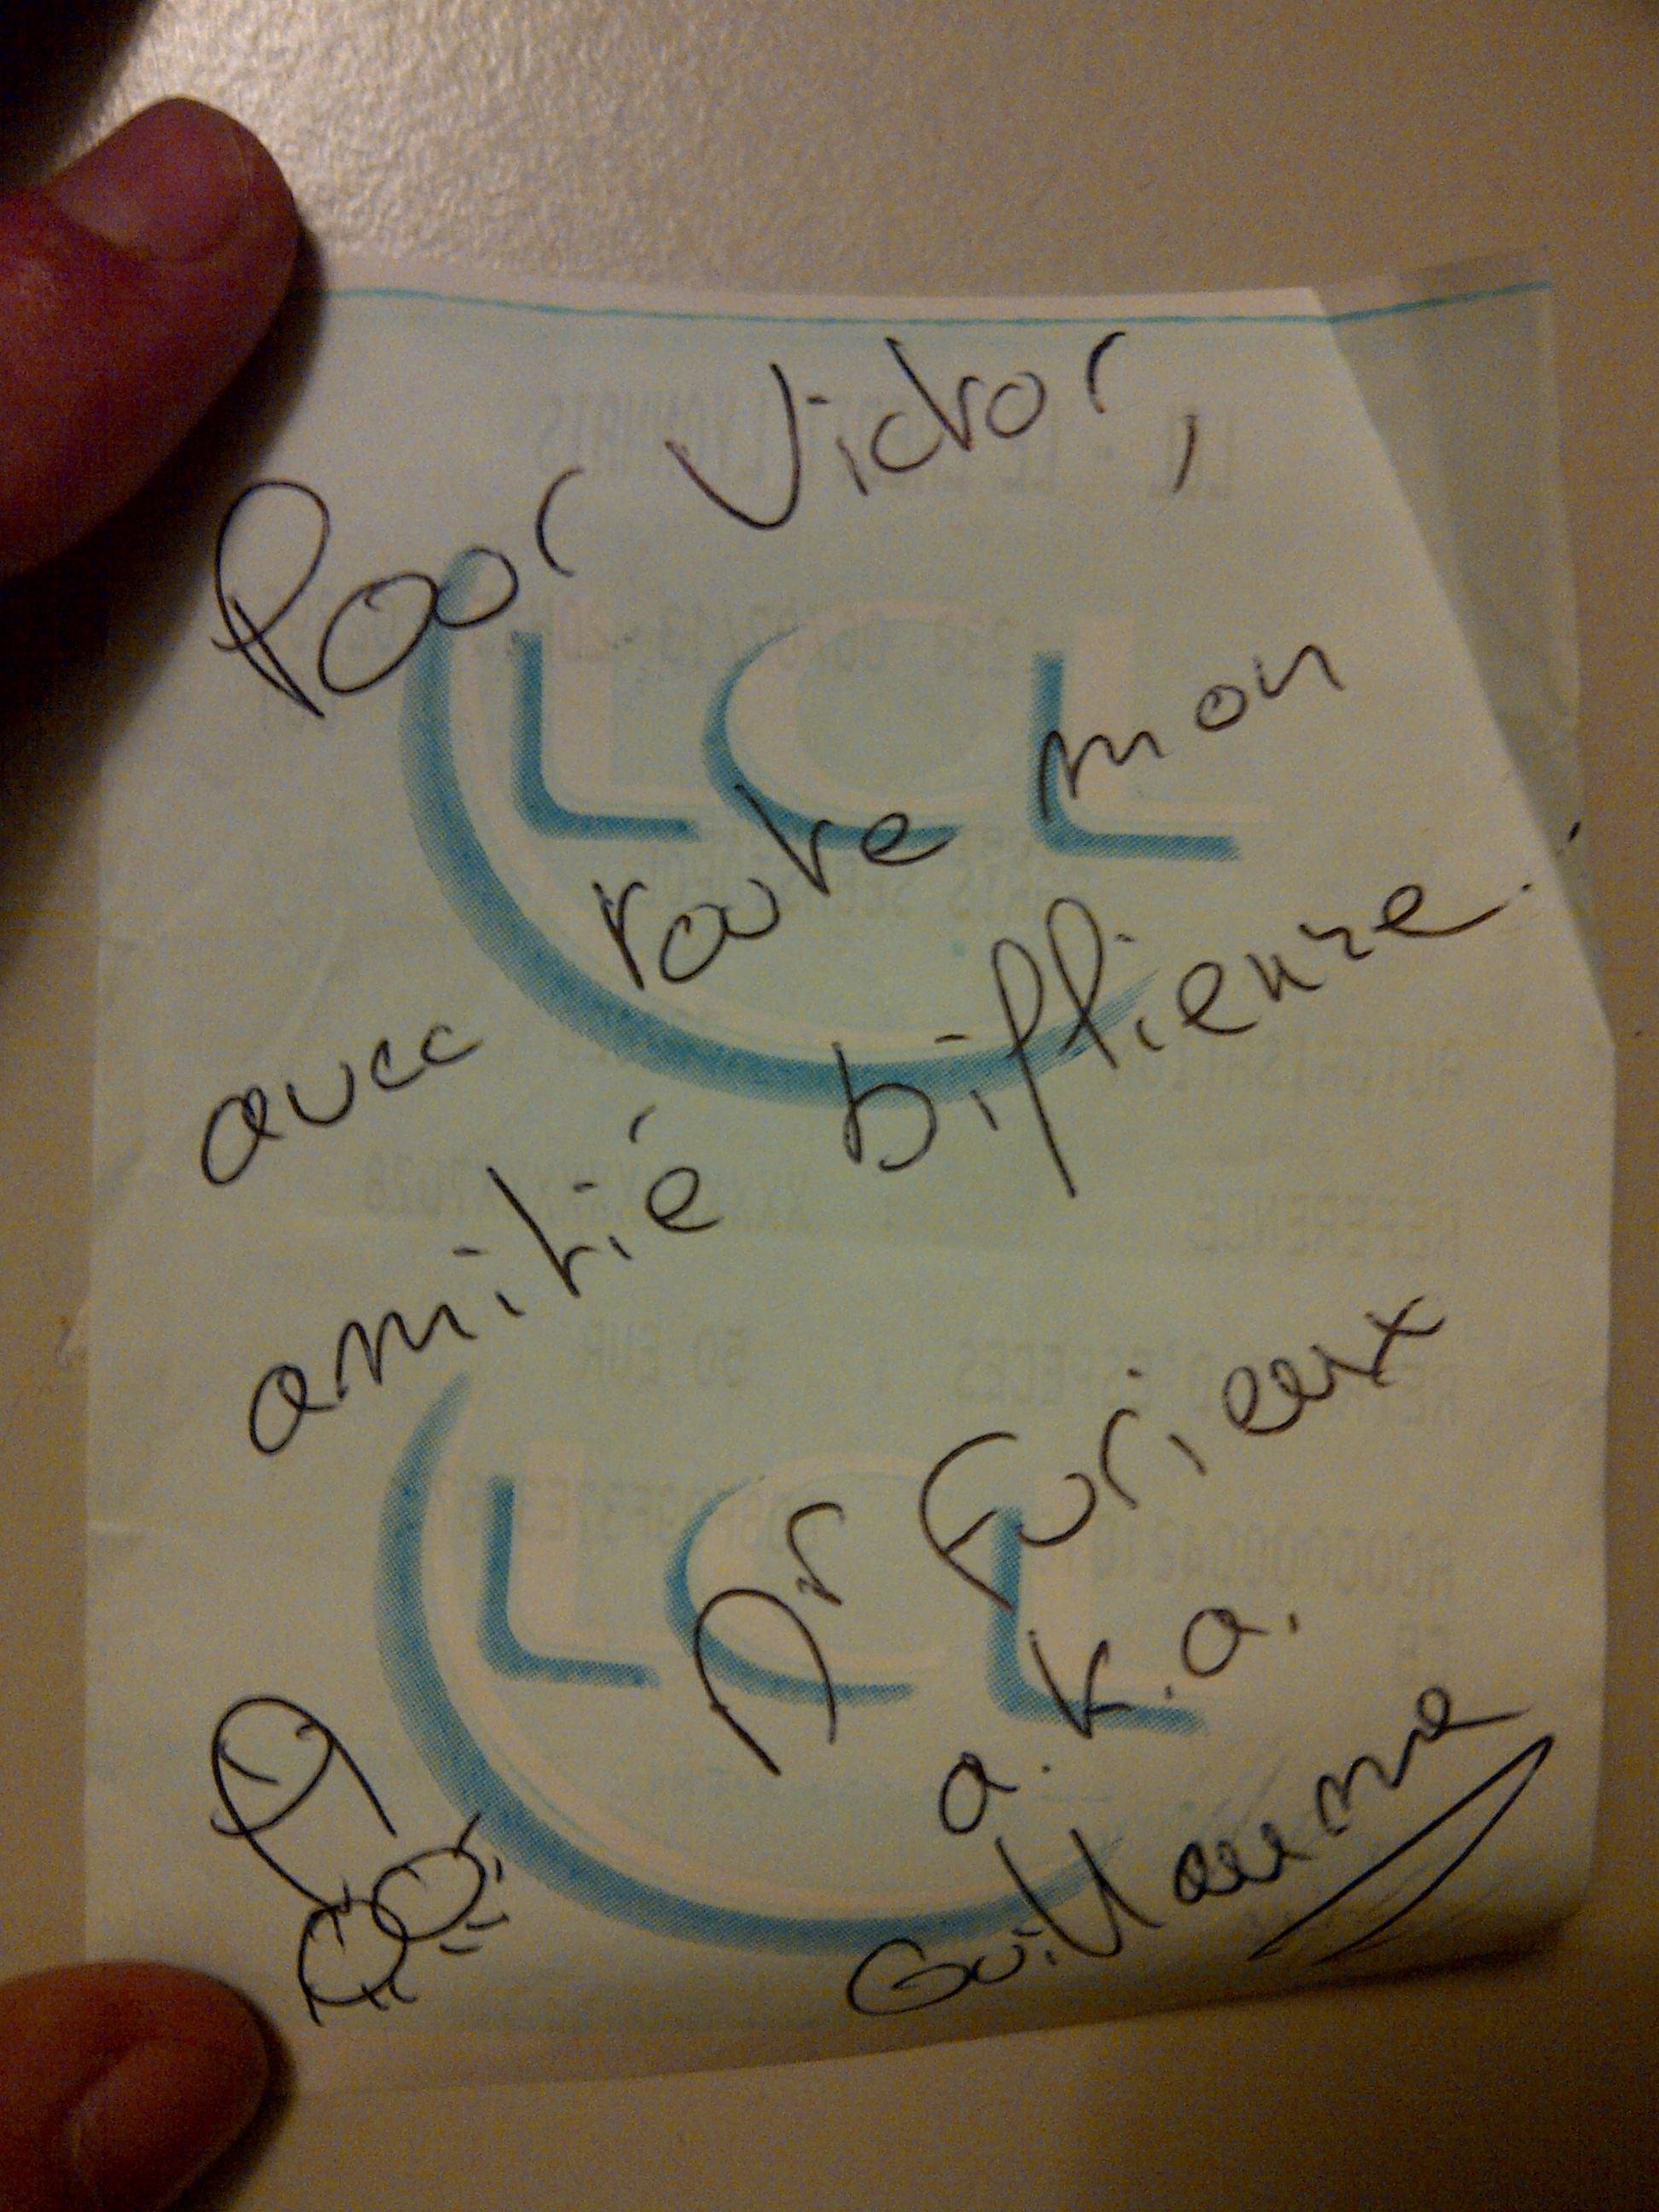 Pour Victor,
avec toute mon
amitié biffienne.
Dr Furieux
a.k.a.
Guillaume
LCL
LCL